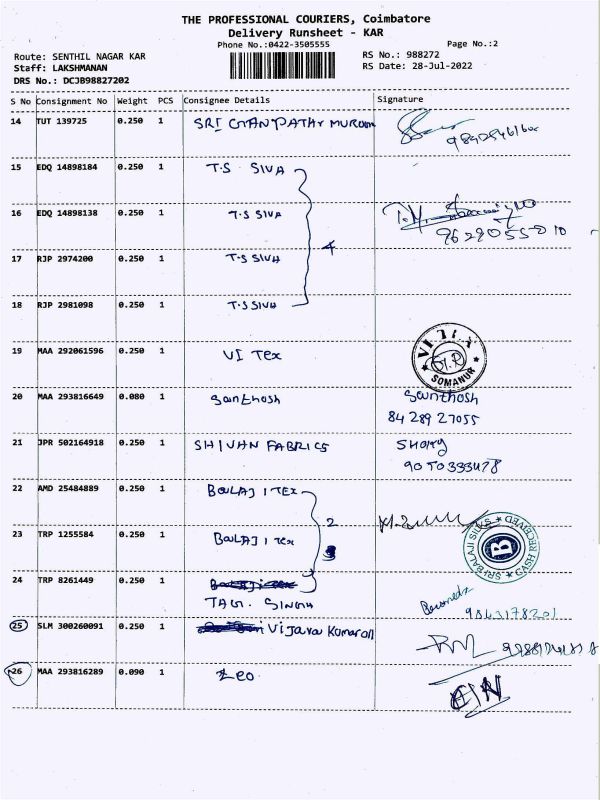 THE PROFESSIONAL COURIERS, Coimbatore
Delivery Runsheet - KAR
Phone No.:0422-3505555 Page No.:2
Route: SENTHIL NAGAR KAR RS No.: 988272
Staff: LAKSHMANAN RS Date: 28-Jul-2022
DRS No.: DCJB98827202
S No Consignment No Weight PCS Consignee Details Signature
14 TUT 139725 0.250 1 SRI
15 EDQ 14898184 0.250 1 T.S SIVA
16 EDQ 14898138 0.250 1 T.S SIVA
4 9629055010
17 RJP 2974200 0.250 1 T.S SIVA
18 RJP 2981098 0.250 1 T.S SIVA
19 MAA 292061596 0.250 1 VI Tex VI TEX
SOMANUR
20 MAA 293816649 0.080 1 Santhosh Santhosh
84289 27055
21 JPR 502164918 0.250 1 SHIVAN FABRICS
22 AMD 25484889 0.250 1 BALAJI TEX
2
23 TRP 1255584 0.250 1 BALAJI Tex SRI BALAJI CASH RECEIVED B
24 TRP 8261449 0.250 1
SINGH 9843178201
25 SLM 300260091 0.250 1
26 MAA 293816289 0.090 1 Leo